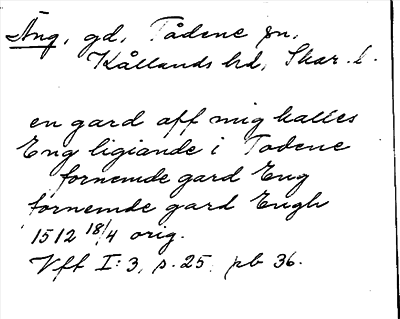 Äng, gd, Tådene sn,
Kållands hd, Skar. l.
en gard aff mig kalles
Eng ligiande i Todene
fornemde gard Eng
fornemde gard Engh
1512 18/4 orig.
Vff I:3, s. 25, pb 36.